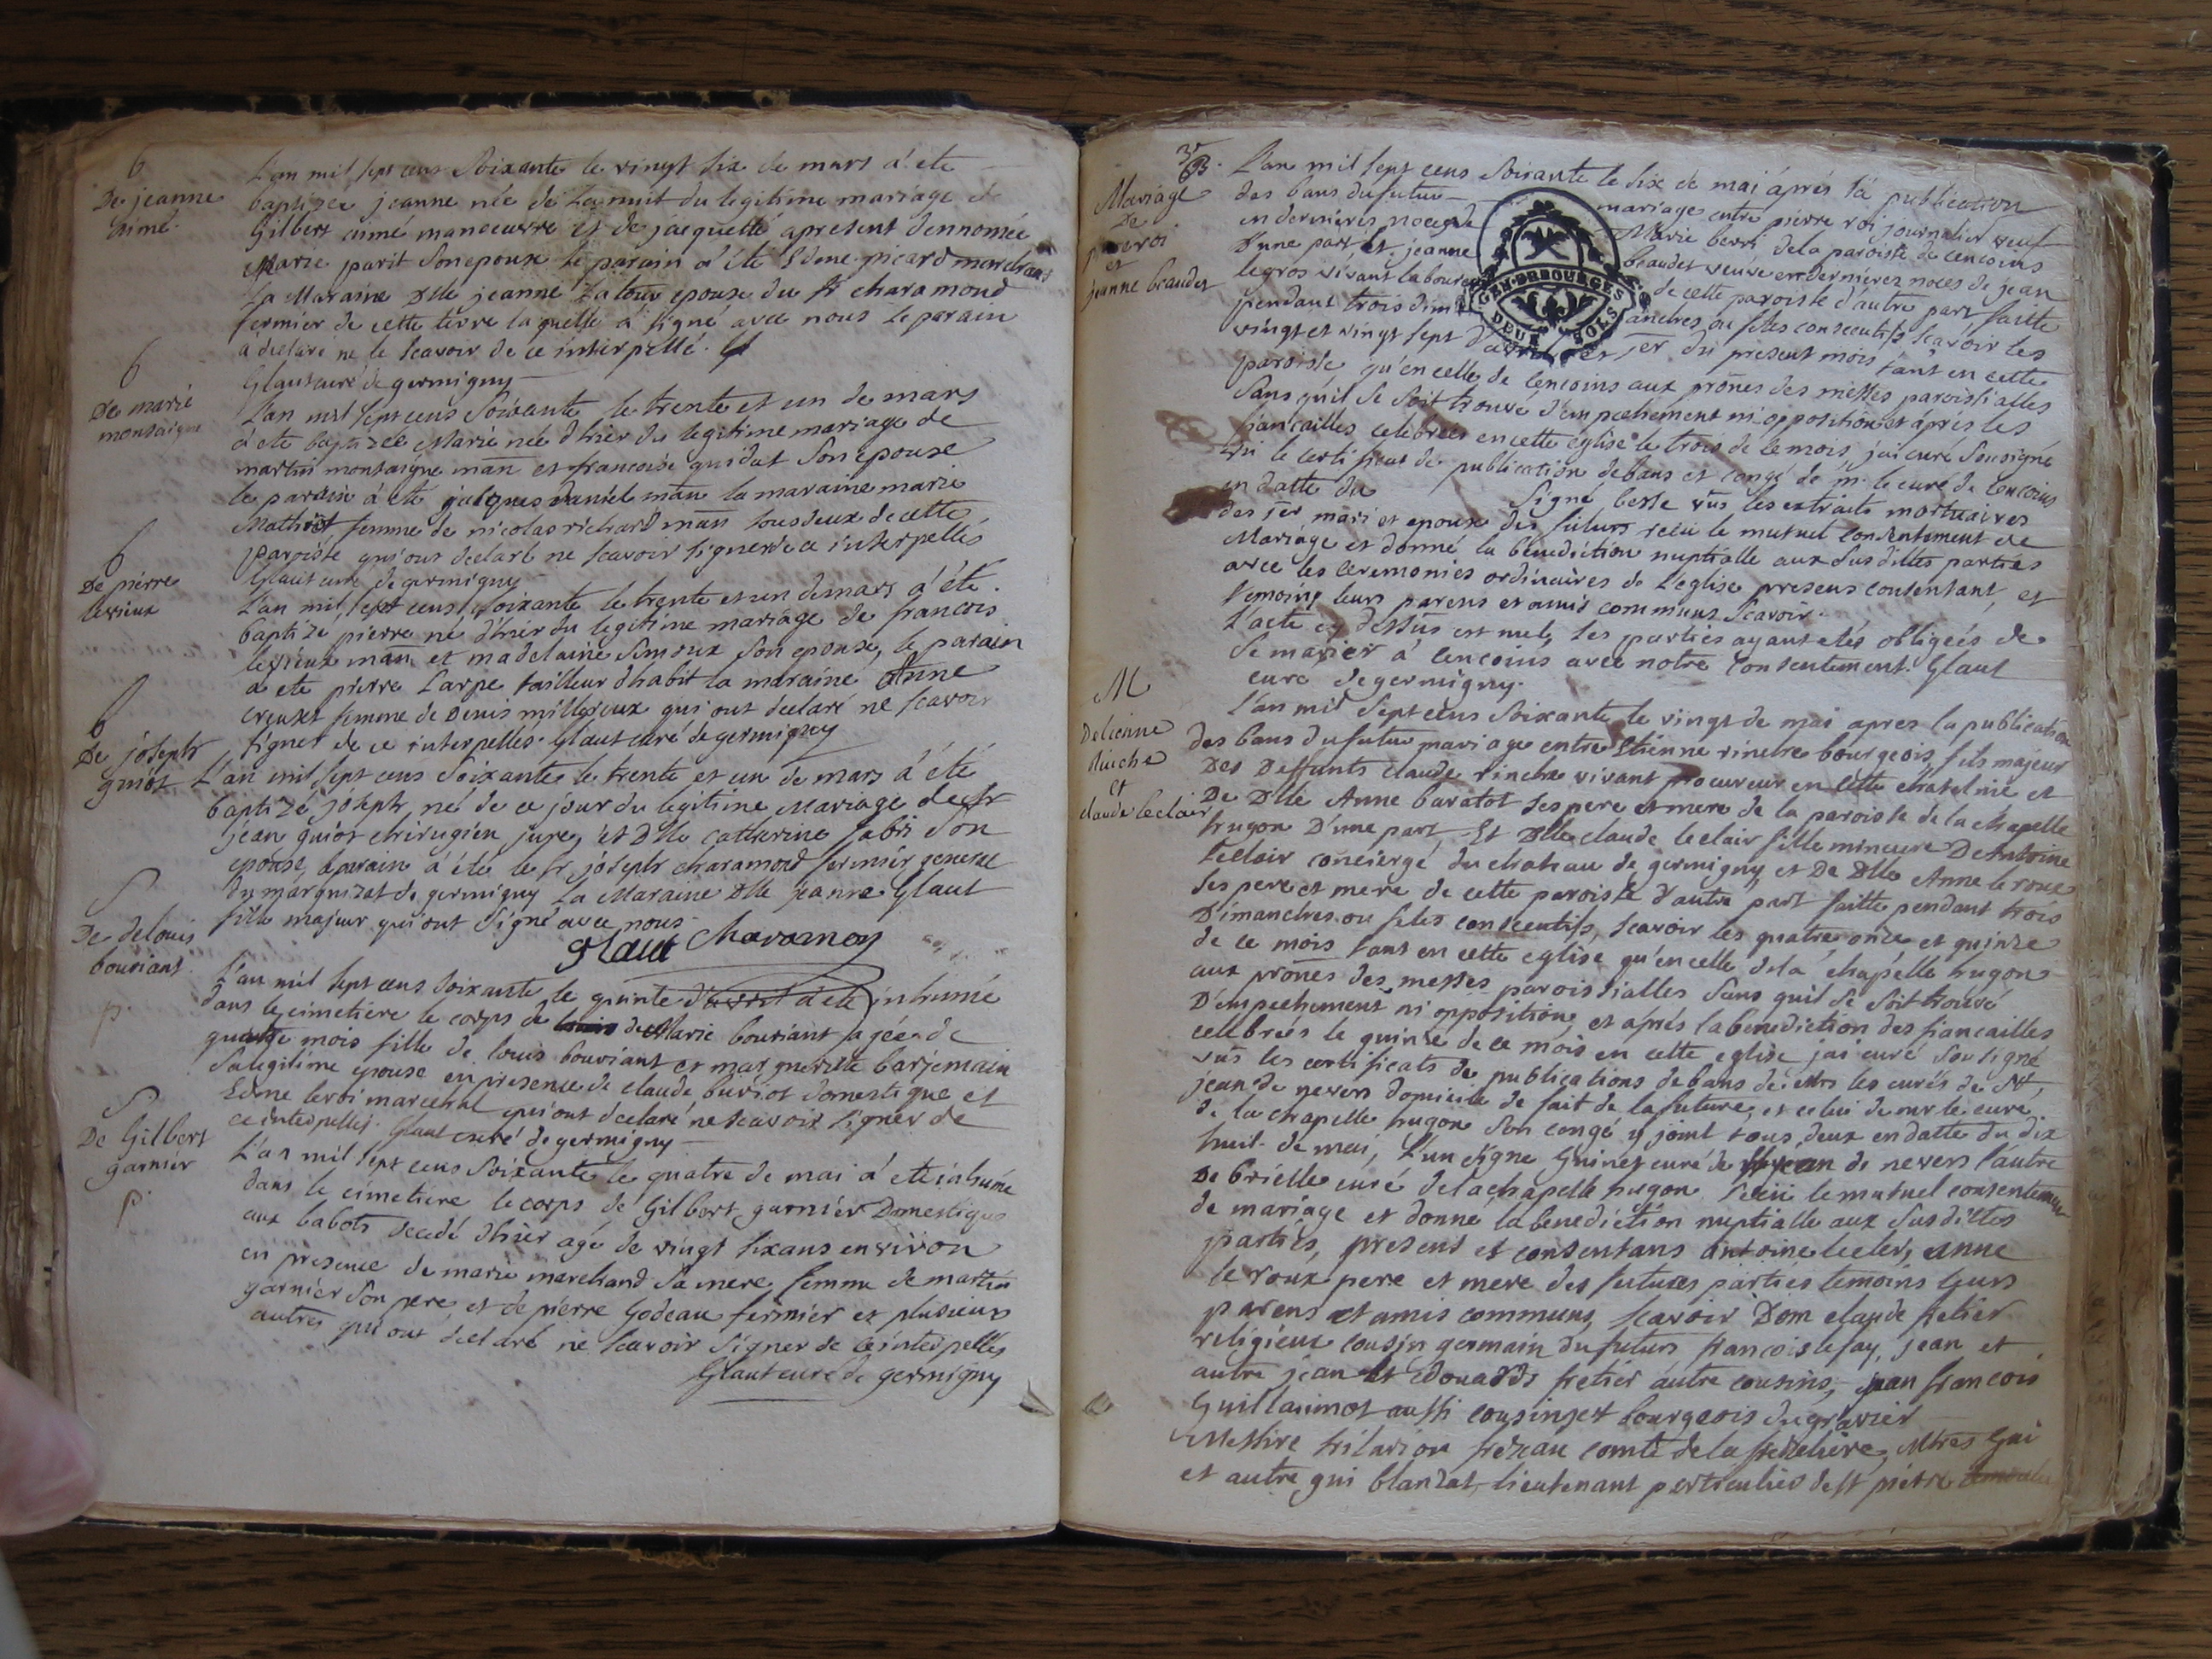 6
De jeanne
aimé
L'an mil sept cens Soixante le vingt six de mars a été
baptizée jeanne née de la nuit du legitime mariage de
Gilbert aimé manoeuvre et de jacquette apresent dennomée
Marie parit Son epouse le parain a été Edme picard marchand
La Maraine Dlle jeanne Latour epouse du Sr charamond
fermier de cette terre laquelle a signé avec nous le parain
a declaré ne le scavoir de ce interpellé.
Glaut curé de germigny
6
De marie
montaigne
L'an mil sept cens Soixante le trente et un de mars
a ete baptizée Marie née d'hier du legitime mariage de
martin montaigne man et francoise guidat Son epouse
le parain a été jacques Daniel man la maraine marie
femme de nicolas richard man tous deux de cette
paroiste qui ous declaré ne scavoir signer de ce interpellés
Glaut curé de germigny
6
De pierre
levieux
L'an mil sept cens Soixante le trente et un de mars a été
baptizé pierre né d'hier du legitime mariage de francois
levieux man et madelaine Simoux Son epouse, le parain
a ete pierre Larpe tailleur d'habit la maraine Anne
creuzet femme de Denis millerieux qui out declaré ne scavoir
signer de ce interpellés. Glaut curé de germigny
6
De joseph
guiot
L'an mil sept cens Soixante le trente et un de mars a été
baptizé joseph né de ce jour du legitime Mariage de Sr
jean guiot chirugien juré, et Dlle catherine fabri Son
epouse, parain a été le Sr joseph charamond fermier general
du marquizat de germigny La Maraine Dlle jeanne Glaut
fille majeur qui out Signé avec nous
Glaut Charamon
S
De de louis
bouriant
p.
L'an mil sept cens soixante le quinze d'avril a été inhumé
dans le cimetiere le corps de louis de Marie bouriant agée de
quatre mois fille de louis bouriant et marguerite barjemain
Sa legitime epouse en presence de claude buriot domestique et
Edme leroi marechal qui out declaré ne scavoir signer de
ce interpellés. Glaut curé de germigny
S
De Gilbert
garnier
p.
L'an mil sept cens Soixante le quatre de mai a été inhumé
dans le cimetiere le corps de Gilbert garnier Domestique
aux babots decedé d'hier agé de vingt six ans environ
en presence de marie marchand Sa mere femme de martin
garnier Son pere et de pierre Godeau fermier et plusieurs
autres qui out declaré ne scavoir signer de ce interpellés
Glaut curé de germigny
3e
Mariage
De
pierre roi
et
jeanne beaudet
L'an mil sept cens Soixante le Six de mai après la publication
des bans du futur mariage entre pierre roi journalier veuf
en dernieres noces de Marie berri de la paroiste de cencoins
D'une part et jeanne beaudet veuve en dernieres noces de jean
legros vivant laboureur de cette paroiste d'autre part faitte
pendant trois dimanches ou fetes consecutifs scavoir les
vingt et vingt sept d'avril et 1er du present mois tant en cette
paroiste qu'en celle de cencoins aux prones des messes paroissialles
Sans qu'il Se Soit trouvé d'empechement ni opposition et après les
fiancailles celebrées en cette eglise le trois de ce mois, j'ai curé Sousigné
vu le certificat de publication de bans et congé de m. le curé de cencoins
en datte du Signé besse vus les extraits mortuaires
des 1er mari et epouse des futurs recu le mutuel consentement de
Mariage et donné la benediction nuptialle aux Sus dittes parties
avec les ceremonies ordinaires de L'eglise presens consentant, et
temoins leurs parens et amis communs Scavoir.
L'acte cy dessus est nul, les parties ayant etés obligées de
Se marier a cencoins avec notre consentement. Glaut
curé de germigny.
GEN. DE BOURGES
DEUX SOLS
M
De etienne
rinche
et
claude leclair
L'an mil Sept cens Soixante le vingt de mai apres la publication
des bans du futur mariage entre Etienne rinche bourgeois, fils majeur
Des Deffunts claude rinche vivant procureur en cette chatelnie et
De Dlle Anne baratot ses pere et mere de la paroiste de la chapelle
hugon D'une part, Et Dlle claude leclair fille mineure De Antoine
leclair concierge du chateau de germigny, et De Dlle Anne le roux
Ses pere et mere de cette paroiste d'autre part faitte pendant trois
Dimanches ou fetes consecutifs, Scavoir les quatre onze et quinze
de ce mois tant en cette eglise qu'en celle de la chapelle hugon
aux prones des messes paroissialles Sans quil Se Soit trouvé
D'empechement ni opposition, et après la benediction des fiancailles
celebrées le quinze de ce mois en cette eglise j'ai curé Sousigné
vus les certificats de publications de bans de mrs les curés de St
jean de nevers domicile de fait de la future, et celui de mr le curé
de la chapelle hugon Son congé y joint tous deux en datte du dix
huit de mai, l'un signé Guinet curé de St jean de nevers l'autre
De brielle curé de la chapelle hugon, recu le mutuel consentement
de mariage et donné la benediction nuptialle aux Susdittes
parties, present et consentans antoine lecler, anne
le roux pere et mere des futures parties temoins leurs
parens et amis communs, Scavoir Dom claude fretier
religieux cousin germain du futur francois lefay, jean et
autre jean et edouard fretier autre cousins, jean francois
Guillaumot aussi cousin et bourgeois du gravier
Messire hilarion frezeau comte de la frezeliere, Mtres Gui
et autre gui blanzat lieutenant perticulier de St pierre